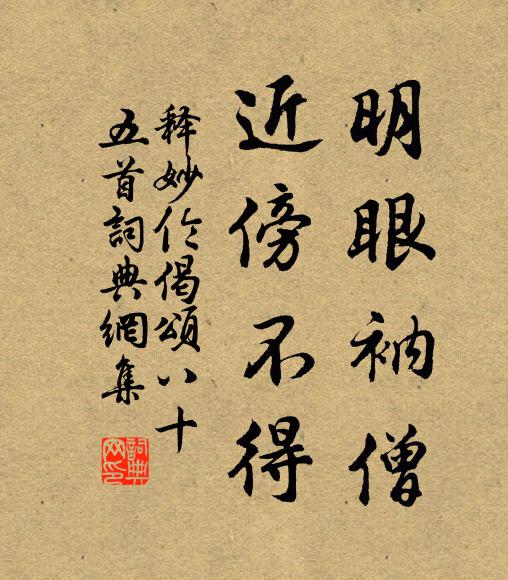 明眼衲僧
近傍不得
释妙伦偈頌八十
五首詞典網集
詞典網印